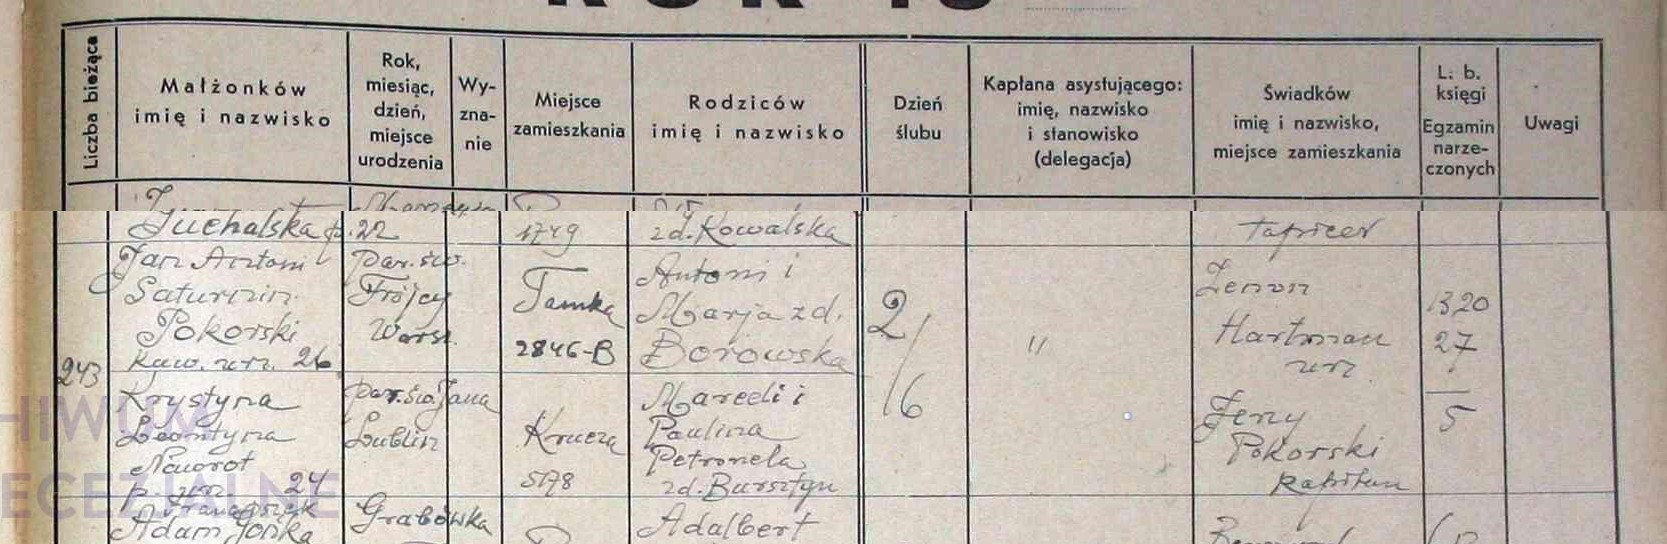 Liczba bieżąca
Małżonków
imię i nazwisko
Rok,
miesiąc,
dzień,
miejsce
urodzenia
Wy-
zna-
nie
Miejsce
zamieszkania
Rodziców
imię i nazwisko
Dzień
ślubu
Kapłana asystującego:
imię, nazwisko
i stanowisko
(delegacja)
Świadków
imię i nazwisko,
miejsce zamieszkania
L. b.
księgi
Egzamin
narze-
czonych
Uwagi
22
1749
zd. Kowalska
tapicer
243
Jan Antoni
Saturnin
Pokorski
kaw. urz. 26
par. św.
Trójcy
Warsz.
Tamka
2846-B
Antoni i
Marja zd.
Borowska
2/6
"
Zenon
Hartman
urz
1320
27
Krystyna
Leontyna
Nawrot
p. urz. 24
par. św. Jana
Lublin
Krucza
5178
Marceli i
Paulina
Petronela
zd. Bursztyn
Jerzy
Pokorski
kapitan
5
Franciszek
Adam
Grabówka
Adalbert
HIWUM
ECEZJALNE